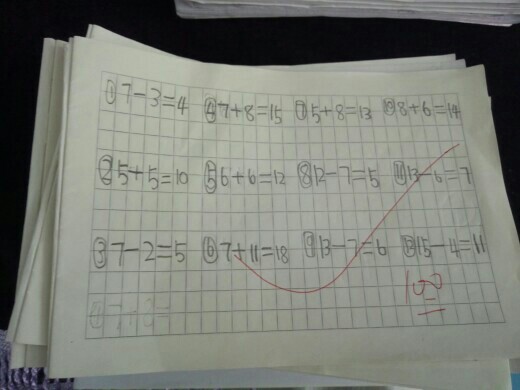 ①7-3=4 ④7+8=15 ⑦5+8=13 ⑩8+6=14
②5+5=10 ⑤6+6=12 ⑧12-7=5 ⑪13-6=7
③7-2=5 ⑥7+11=18 ⑨13-7=6 ⑫15-4=11
100